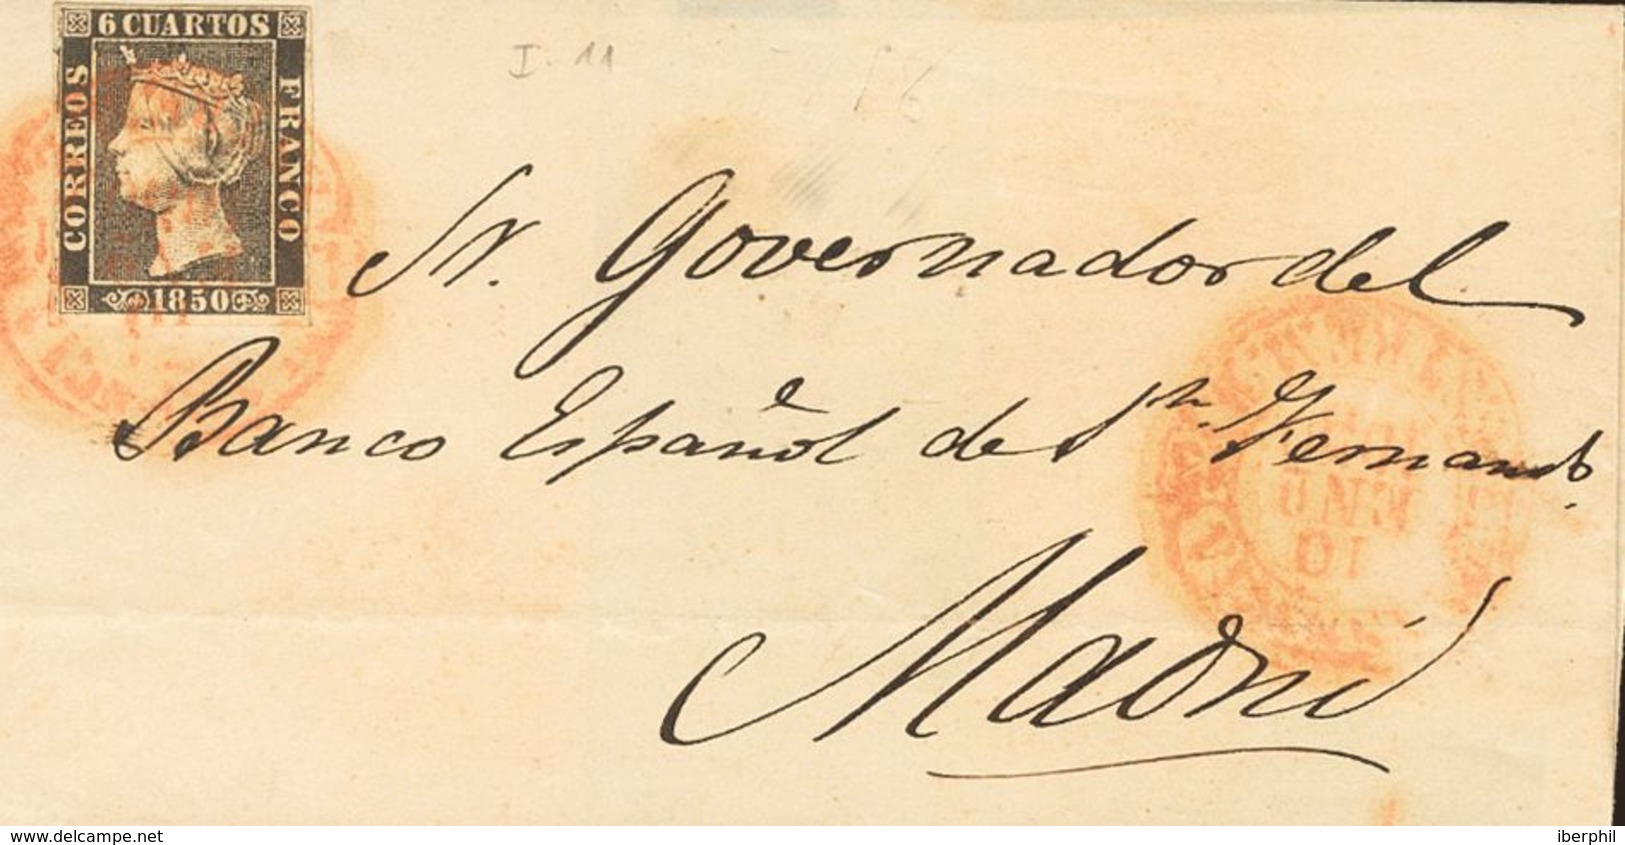 6 CUARTOS
CORREOS
FRANCO
1850
I. 11
Sr. Governador del
Banco Español de Sn. Fernando.
Madrid
10
www.delcampe.net
iberphil